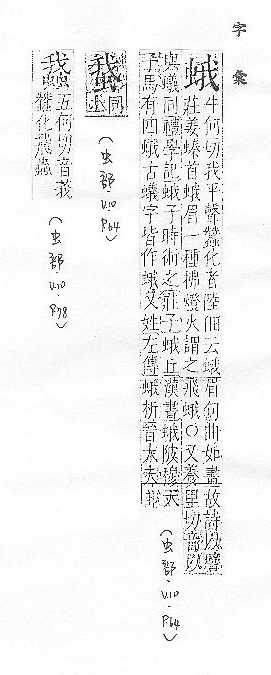 字彙
蛾 牛何切我平聲蠶化者陸佃云蛾眉句曲如畫故詩以譬
莊姜螓首蛾眉一種拂燈火謂之飛蛾○又養里切音以
與蟻同禮學記蛾子時術之莊子蛾丘漢書蛾陂穆天
子馬有四蛾古蟻字皆作蛾又姓左傳蛾析晉大夫 蛾
(虫部.V10.P64)
䖸 同上
(虫部.V10.P64)
五何切音莪
蠶化飛蟲
(虫部.V10.P78)